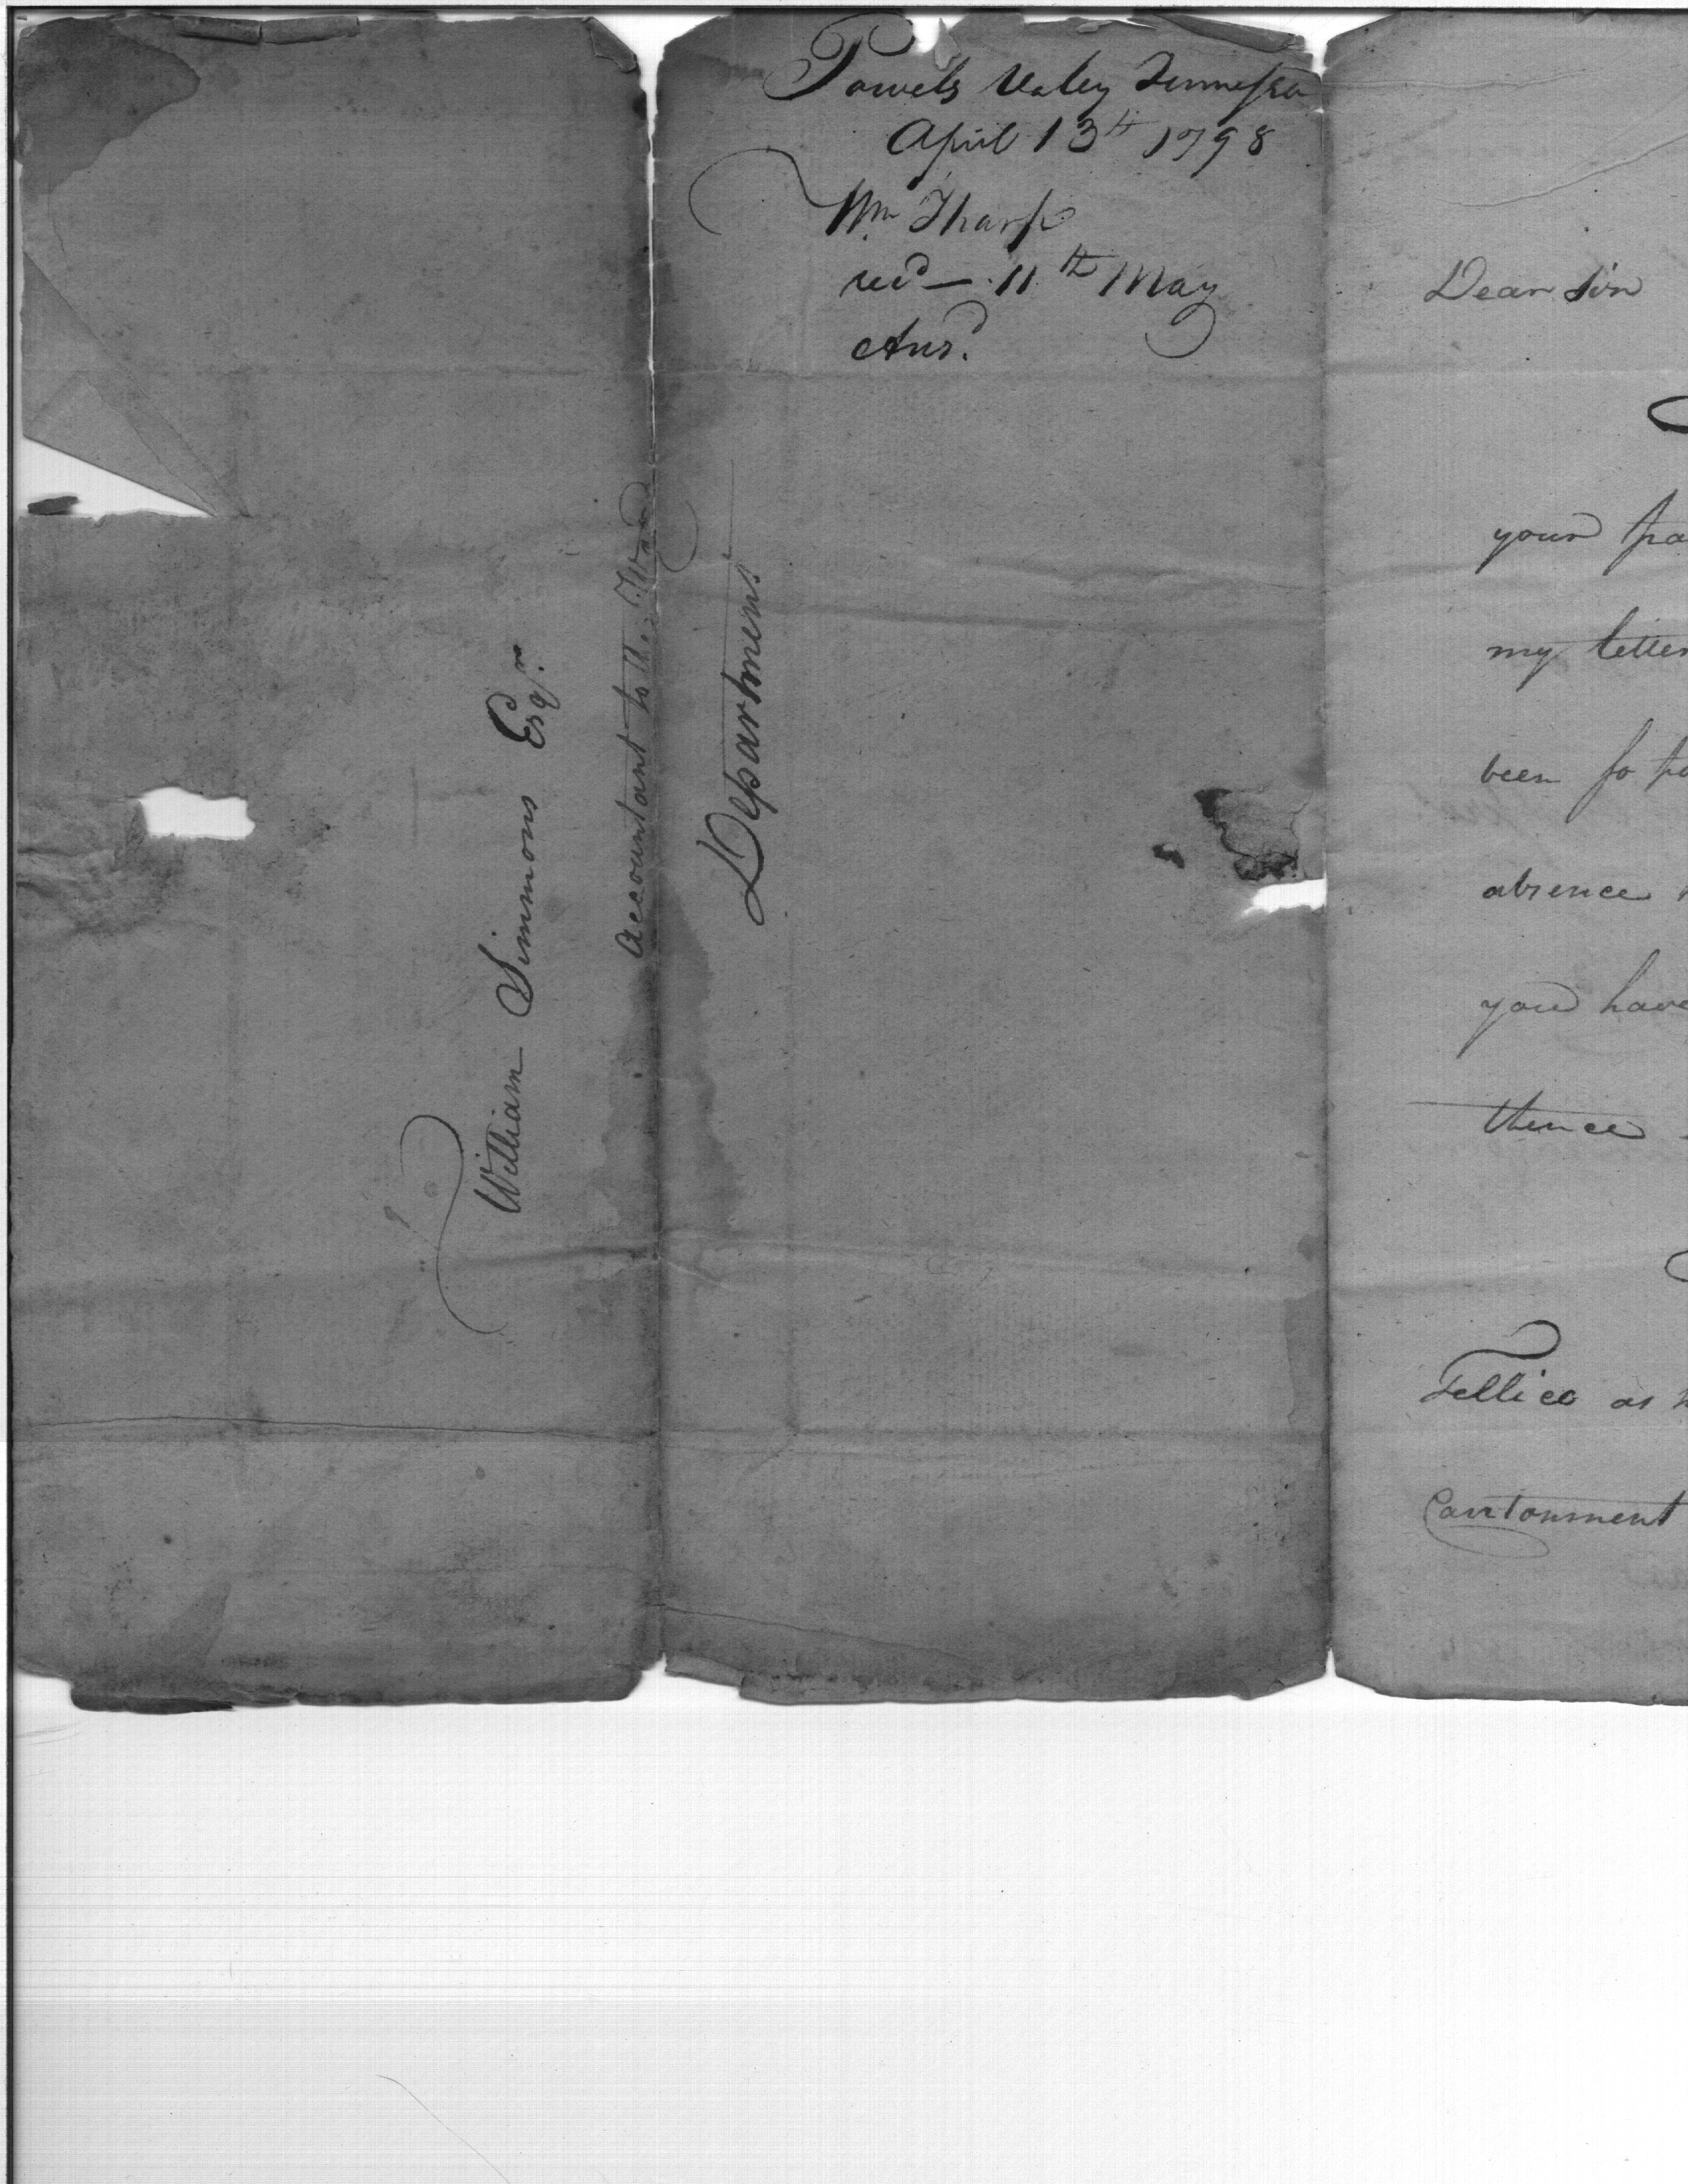 Powels Valey Tennessee
April 13th 1798
Wm Tharp
recd — 11th May
Ansd.
William Simmons Esqr.
Accountant to the War
Department
Dear Sir
your
my letter
been so
absence
you have
thence
Tellico as
Cantonment